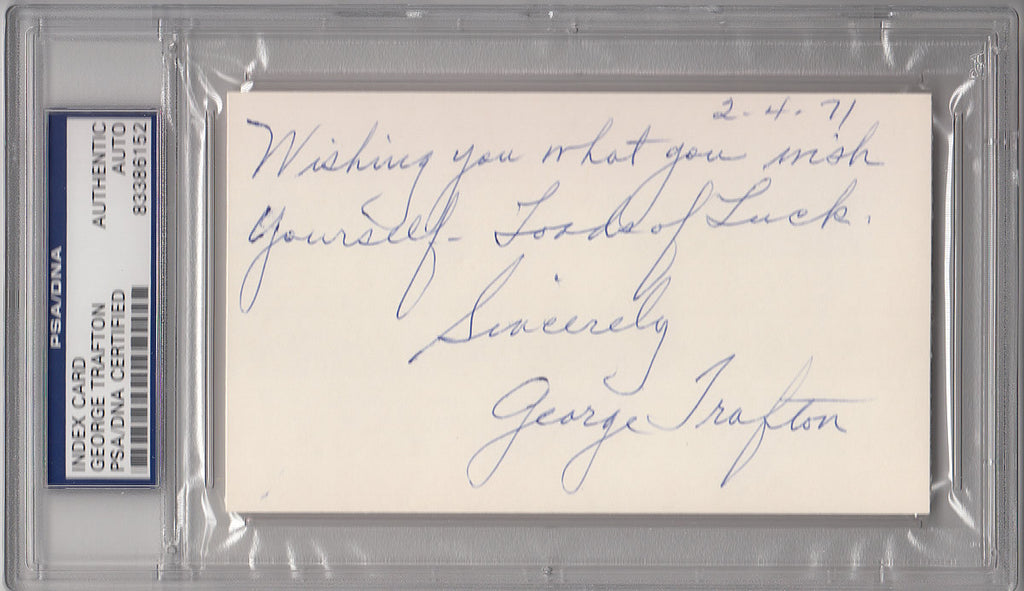 PSA/DNA
INDEX CARD
GEORGE TRAFTON
PSA/DNA CERTIFIED
AUTHENTIC
AUTO
83386152
2-4-71
Wishing you what you wish
Yourself- Loads of Luck.
Sincerely
George Trafton